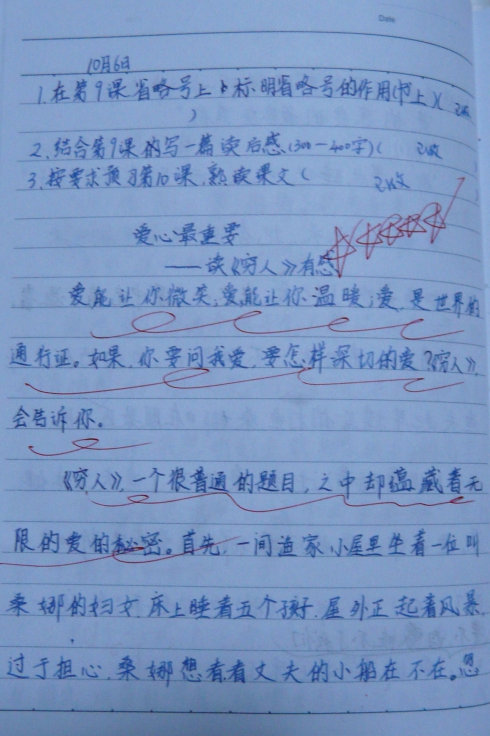 Date
10月6日
1.在第9课省略号上 标明省略号的作用(书上)(
)
2、结合第9课的写一篇读后感(300-400字)(
3、按要求预习第10课,熟读课文(
爱心最重要
——读《穷人》有感
爱能让你微笑;爱能让你温暖;爱,是世界的
通行证。如果,你要问我爱,要怎样深切的爱?《穷人》,
会告诉你。
《穷人》,一个很普通的题目,之中却蕴藏着无
限的爱的秘密。首先,一间渔家小屋里坐着一位叫
桑娜的妇女,床上睡着五个孩子,屋外正起着风暴,
过于担心,桑娜想看看丈夫的小船在不在。忽